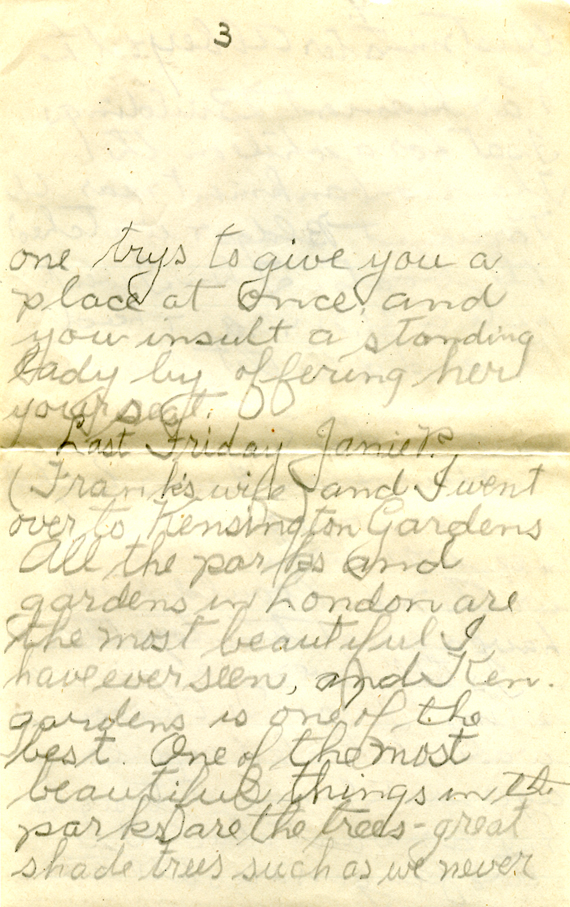 3
one trys to give you a
place at once, and
you insult a standing
lady by offering her
your seat.
Last Friday Janie R.
(Frank's wife) and I went
over to Kensington Gardens
All the parks and
gardens in London are
the most beautiful I
have ever seen, and Ken.
gardens is one of the
best. One of the most
beautiful things in the
parks are the trees - great
shade trees such as we never